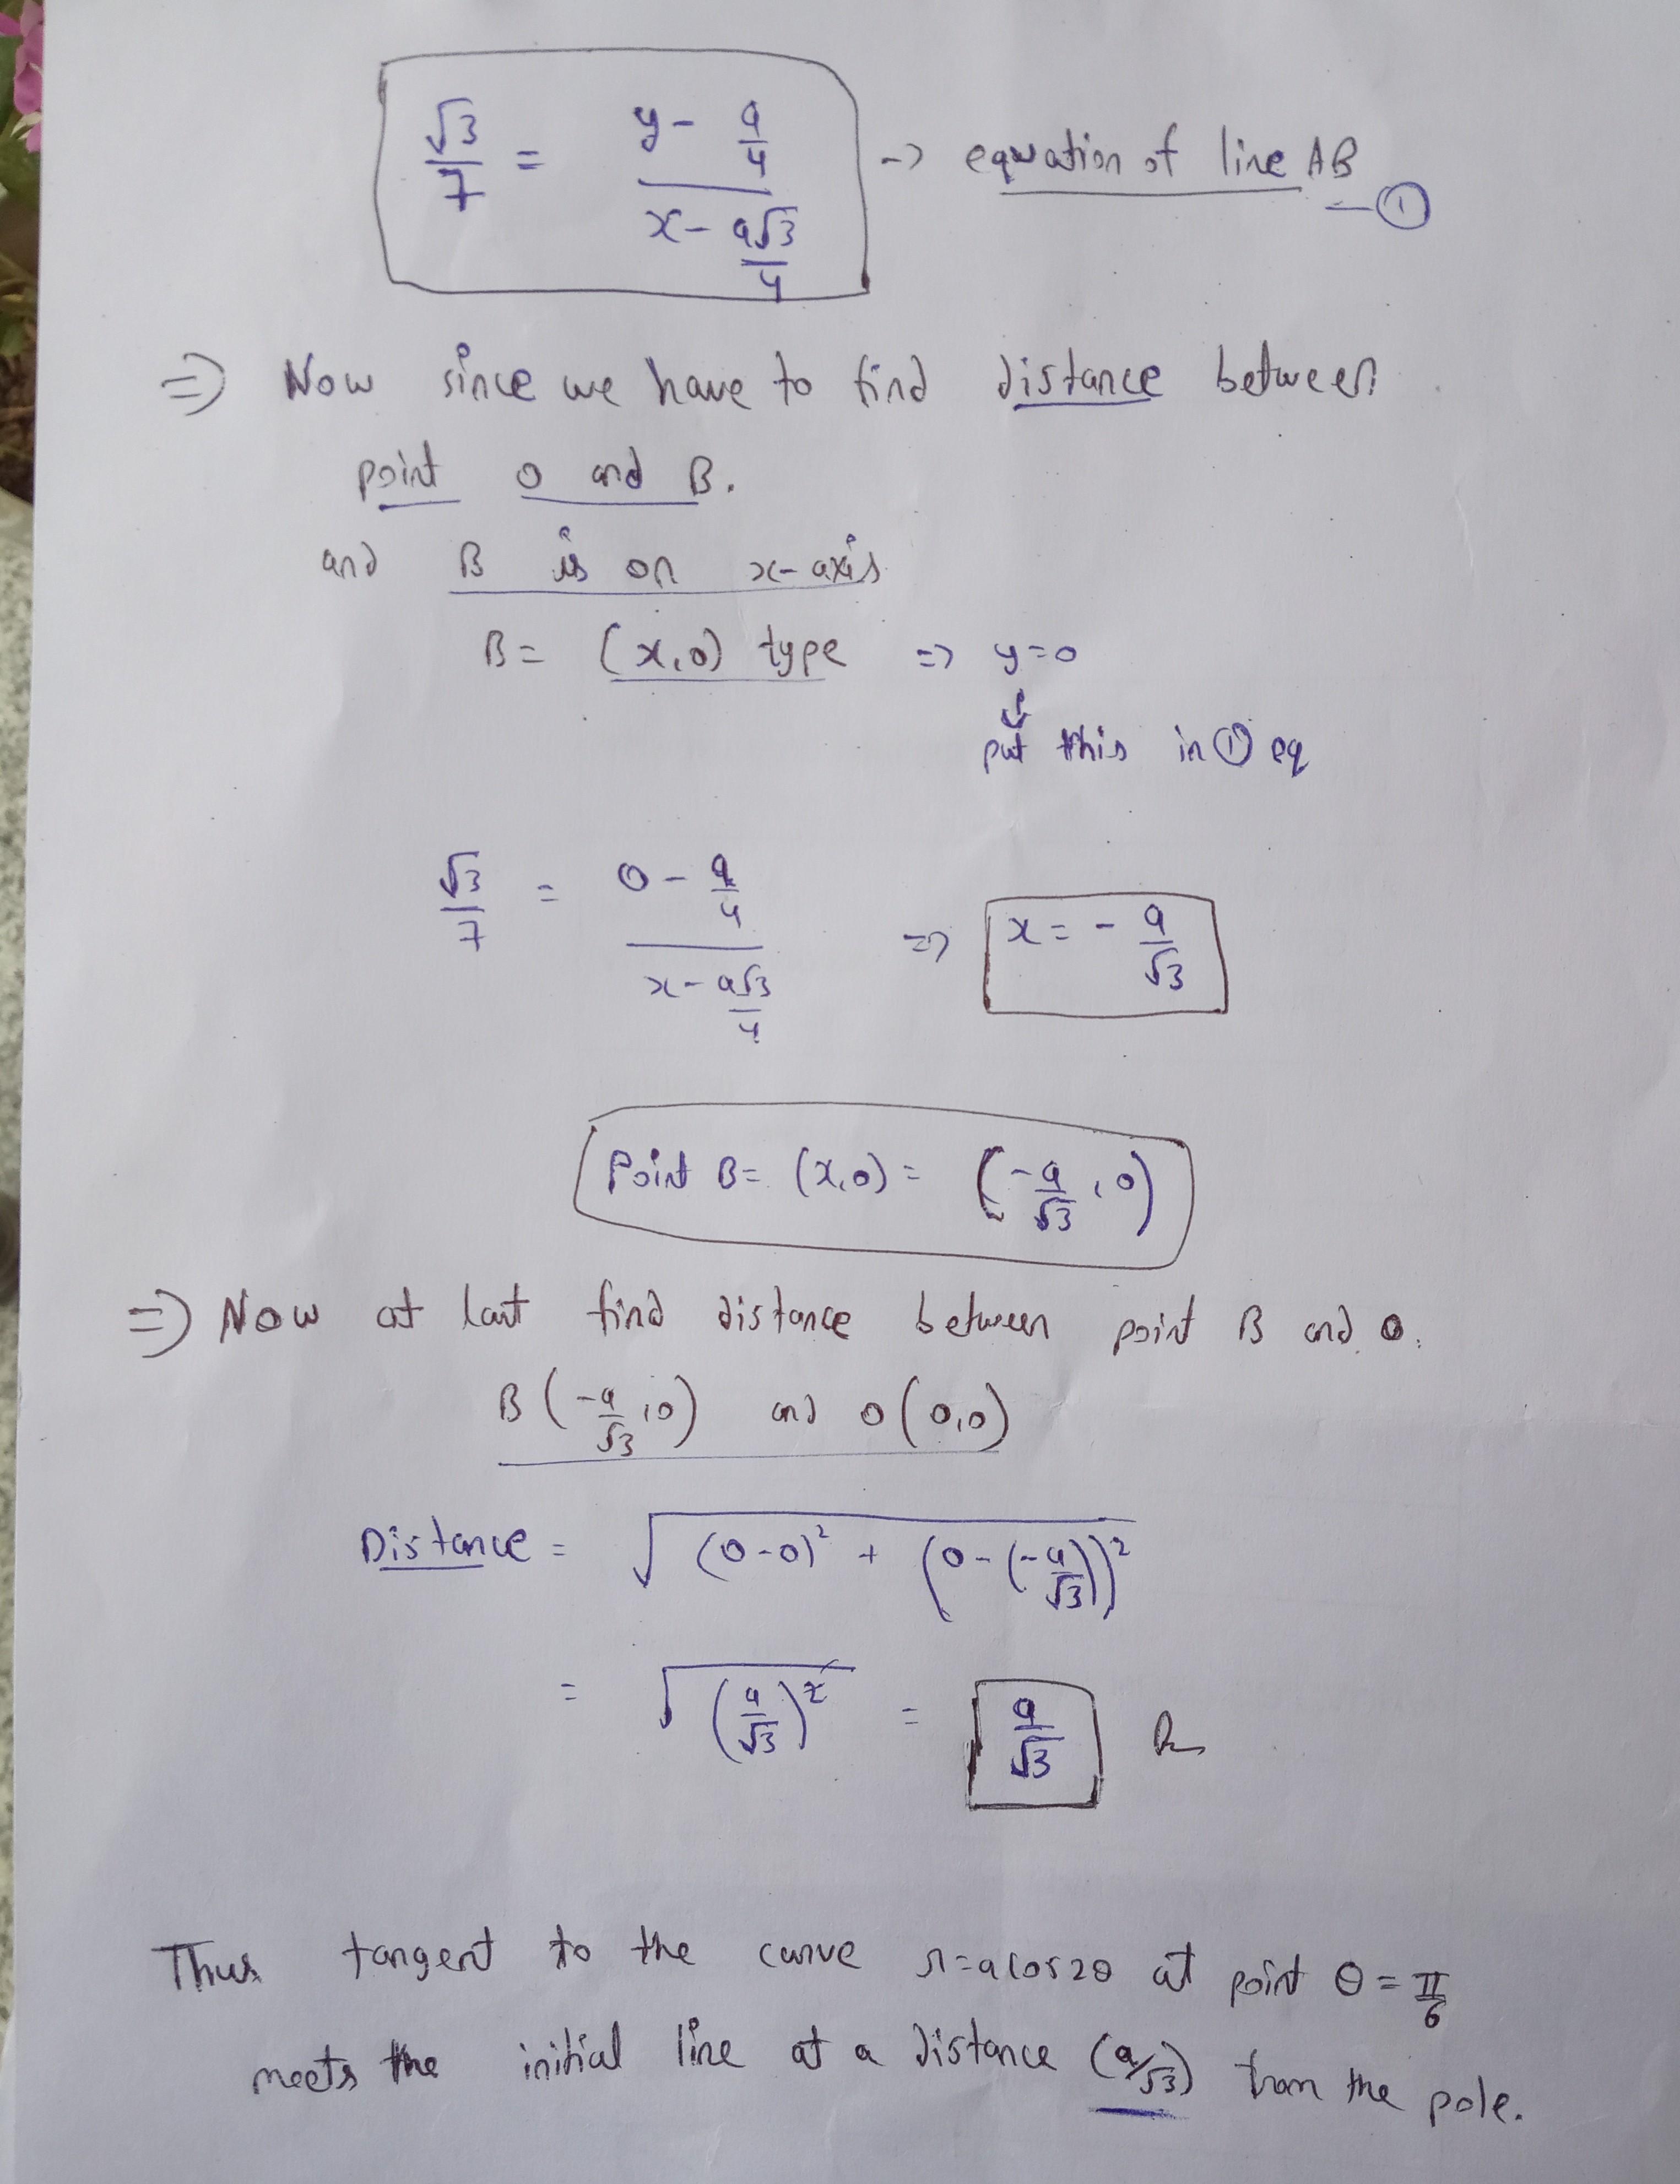 √3/7 = (y - a/4)/(x - a√3/4) → equation of line AB —①
⇒ Now since we have to find distance between
point O and B.
and B is on x-axis
B = (x,0) type ⇒ y=0
↓
put this in ① eq
√3/7 = (0 - a/4)/(x - a√3/4) ⇒ x = -a/√3
Point B = (x,0) = (-a/√3, 0)
⇒ Now at last find distance between point B and O.
B(-a/√3, 0) and O(0,0)
Distance = √((0-0)² + (0-(-a/√3))²)
= √((a/√3)²) = a/√3
Thus tangent to the curve r=acos2θ at point θ = π/6
meets the initial line at a distance (a/√3) from the pole.